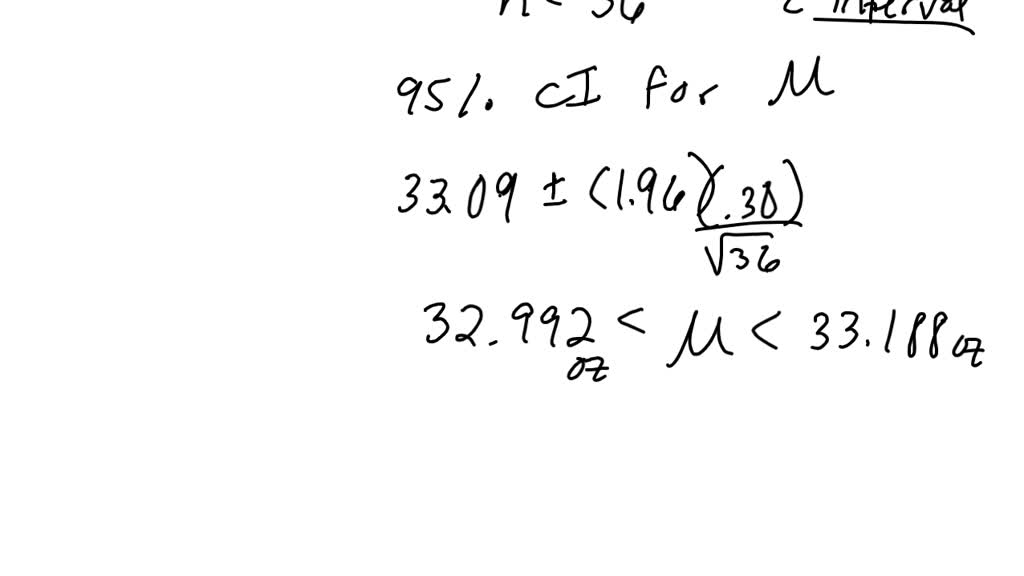 n = 36 z interval
95% CI for μ
33.09 ± (1.96)(.30)
√36
32.992 < μ < 33.188 oz
oz